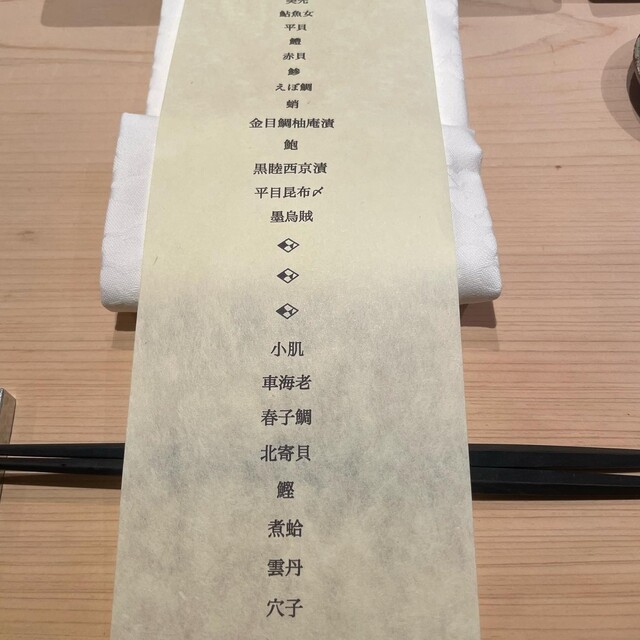 鮎魚女
平貝
鱧
赤貝
鯵
えぼ鯛
蛸
金目鯛柚庵漬
鮑
黒睦西京漬
平目昆布〆
墨烏賊
小肌
車海老
春子鯛
北寄貝
鰹
煮蛤
雲丹
穴子